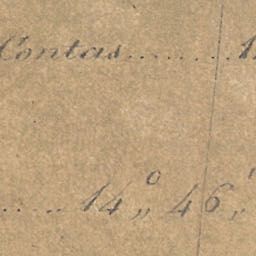 Contas........1
..... 14,,° 46,,'